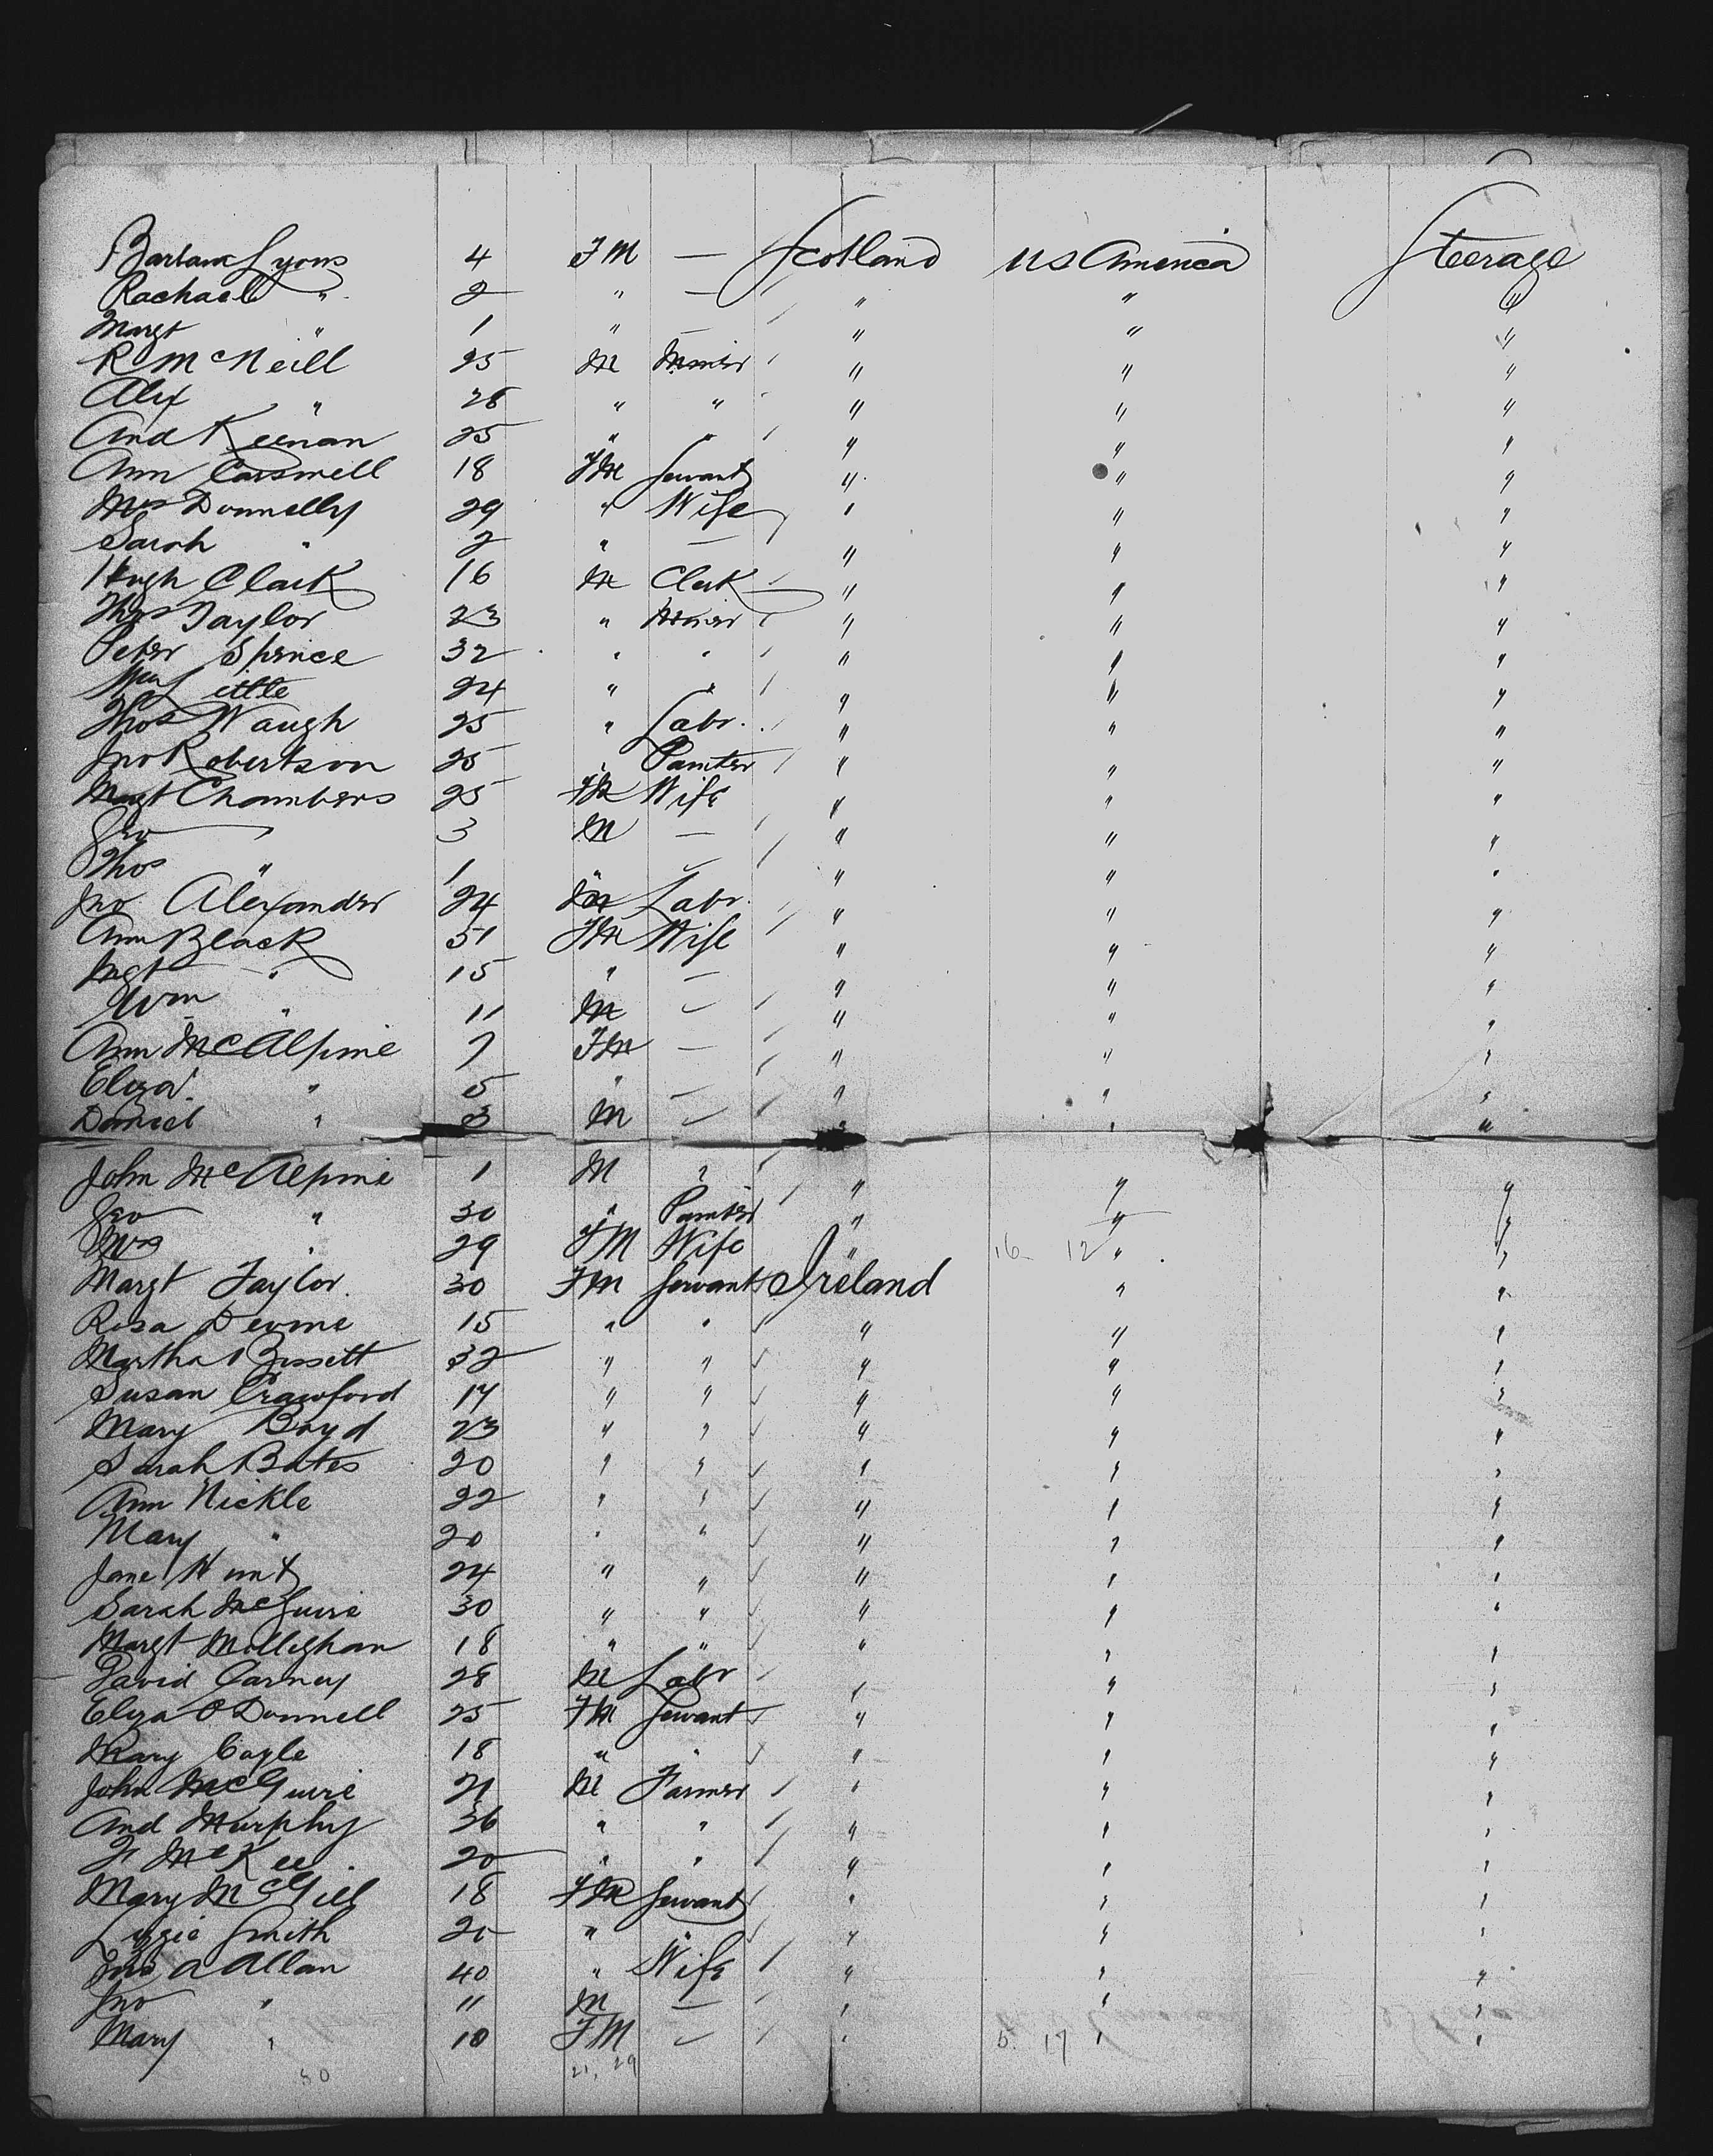 Barbara Lyons 4 FM — Scotland US America Steerage
Rachael " 2 " — " " "
Margt " 1 " — " " "
R McNeill 25 M Miner " " "
Alex " 28 " " " " "
And Keenan 25 " " " " "
Ann Carswell 18 FM Servant " " "
Mrs Donnelly 29 " Wife " " "
Sarah " 2 " — " " "
Hugh Clark 16 M Clerk " " "
Thos Taylor 23 " Miner " " "
Peter Spence 32 " " " " "
Wm Little 24 " " " " "
Thos Waugh 25 " Labr. " " "
Jno Robertson 25 " Painter " " "
Margt Chambers 25 FM Wife " " "
Geo " 3 M — " " "
Thos " 1 " — " " "
Jno Alexander 24 M Labr. " " "
Ann Black 51 FM Wife " " "
Mgt " 15 " — " " "
Wm " 11 M — " " "
Ann McAlpine 7 FM — " " "
Eliza " 5 " — " " "
Daniel " 3 M — " " "
John McAlpine 1 M " " " "
Geo " 30 " Painter " " "
Mrs " 29 FM Wife " 16 12 " "
Margt Taylor. 30 FM Servant Ireland " "
Rosa Devine 15 " " " " "
Martha Bissett 32 " " " " "
Susan Crawford 17 " " " " "
Mary Boyd 23 " " " " "
Sarah Bates 20 " " " " "
Ann Nickle 22 " " " " "
Mary " 20 " " " " "
Jane 24 " " " " "
Sarah McGuire 30 " " " " "
Margt Mullighan 18 " " " " "
David Carney 28 M Labr " " "
Eliza O'Donnell 25 FM Servant " " "
Mary Cagle 18 " " " " "
John McGuire 21 M Farmer " " "
And Murphy 36 " " " " "
F McKee 20 " " " " "
Mary McGill 18 FM Servant " " "
Lizzie Smith 20 " " " " "
A Allan 40 " Wife " " "
Jno " 11 M — " " "
Mary " 10 FM — " 5 17 " "
50 21, 29